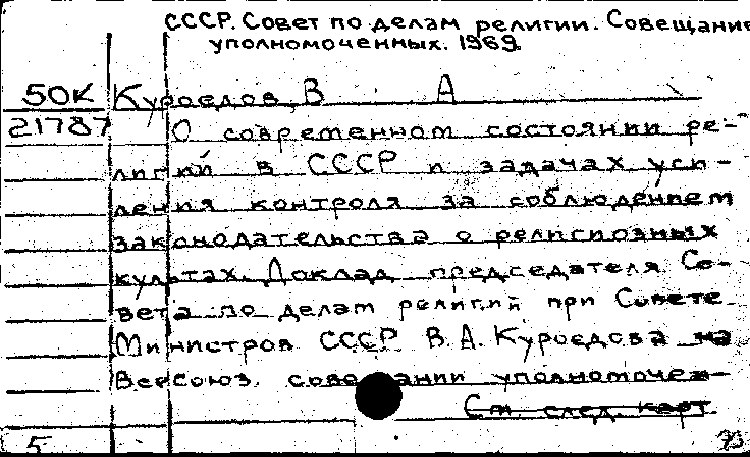 СССР. Совет по делам религии. Совещание
уполномоченных. 1969.
50К Куроедов, В А
21787 О современном состоянии ре-
лигий в СССР и задачах уси-
ления контроля за соблюдением
законодательства о религиозных
культах. Доклад председателя Со-
вета по делам религий при Совете
Министров СССР В.А. Куроедова на
Всесоюз. сове ании уполномочен-
См. след. карт.
5 73